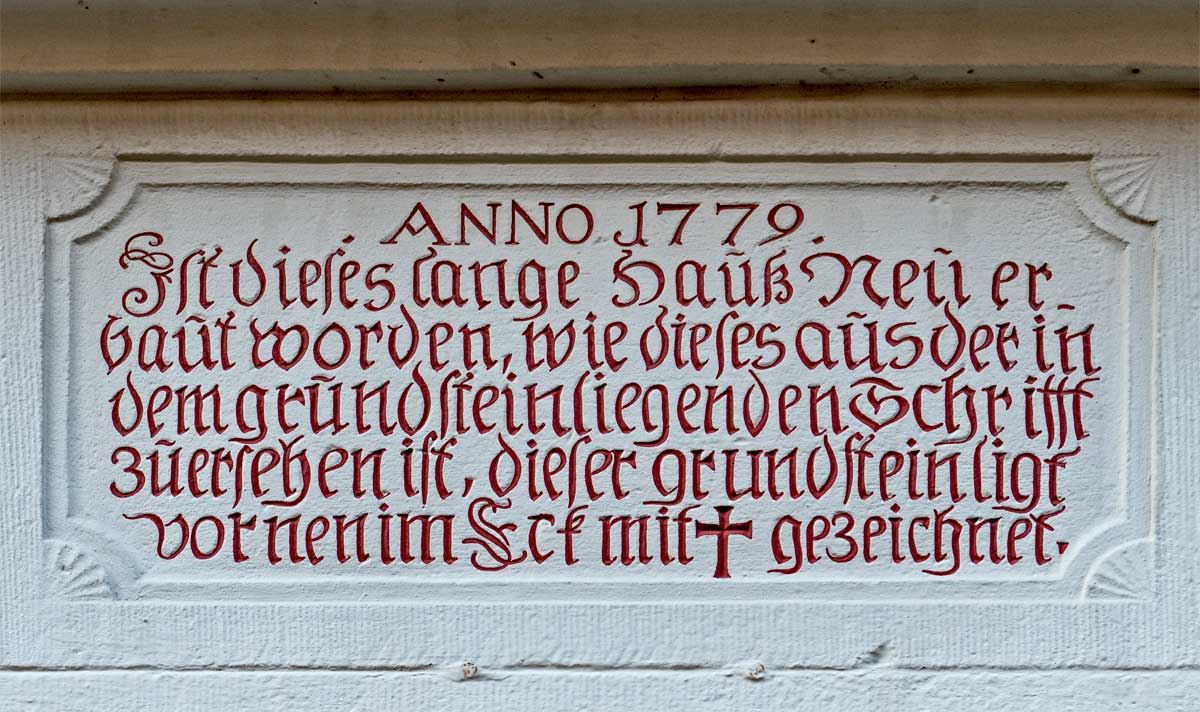 ANNO 1779.
Ist dieses lange Haŭß Neŭ er
baŭt worden, wie dieses aŭs der in
dem grŭndstein liegenden Schrifft
zŭersehen ist, dieser grundstein ligt
vornen im Eck mit ✝ gezeichnet.